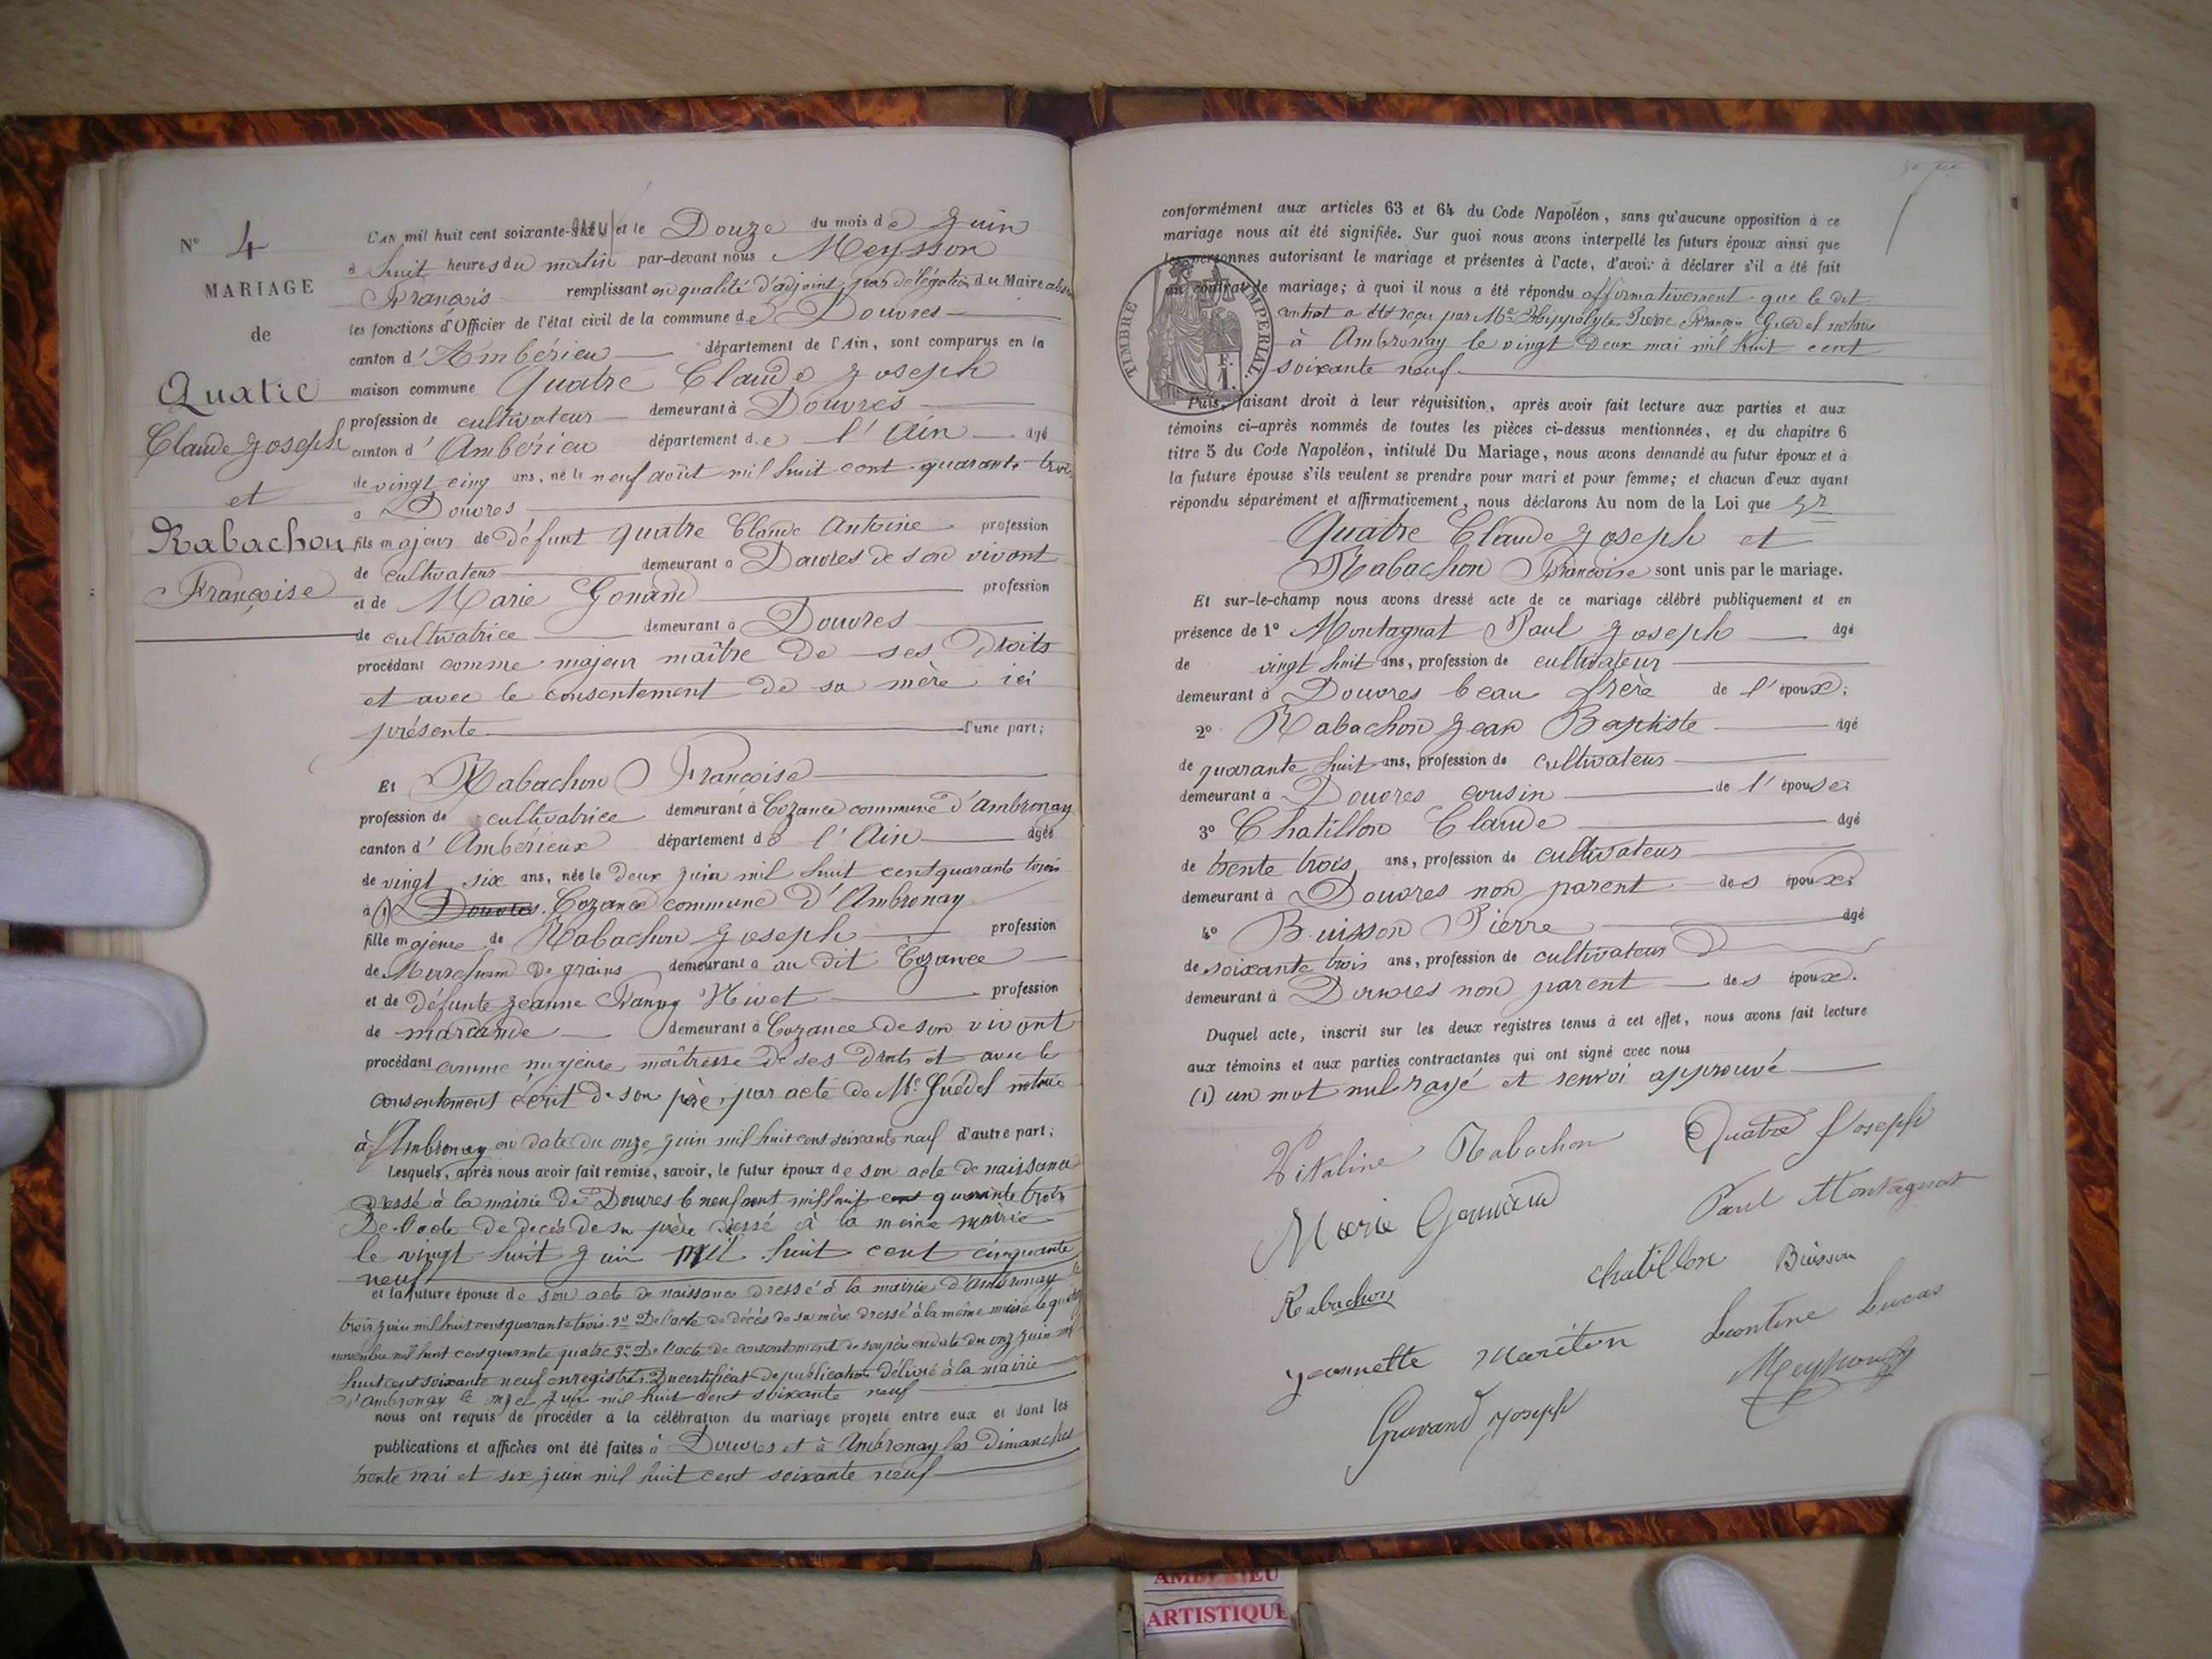 N° 4
MARIAGE
de
Quatre
Claude Joseph
et
Rabachon
Françoise
L'AN mil huit cent soixante-neuf et le Douze du mois de Juin
à huit heures du matin par-devant nous Meysson
François remplissant en qualité d'adjoint, par délégation du Maire
les fonctions d'Officier de l'état civil de la commune de Douvres
canton d'Ambérieu département de l'Ain, sont comparus en la
maison commune Quatre Claude Joseph
profession de cultivateur demeurant à Douvres
canton d'Ambérieu département de l'Ain âgé
de vingt cinq ans, né le neuf août mil huit cent quarante trois
à Douvres
fils majeur de défunt Quatre Claude Antoine profession
de cultivateur demeurant à Douvres de son vivant
et de Marie Gonand profession
de cultivatrice demeurant à Douvres
procédant comme majeur maître de ses Droits
et avec le consentement de sa mère ici
présente d'une part;
Et Rabachon Françoise
profession de cultivatrice demeurant à Cozance commune d'Ambronay
canton d'Ambérieux département de l'Ain âgée
de vingt six ans, née le deux juin mil huit cent quarante trois
à (1) Douvres. Cozance commune d'Ambronay
fille majeure de Rabachon Joseph profession
de Marchand de grains demeurant à au dit Cozance
et de défunte Jeanne Fanny Nivet profession
de marcande demeurant à Cozance de son vivant
procédant comme majeure maîtresse de ses droits et avec le
consentement écrit de son père, par acte de Me Guédel notaire
à Ambronay en date du onze juin mil huit cent soixante neuf d'autre part;
Lesquels, après nous avoir fait remise, savoir, le futur époux de son acte de naissance
dressé à la mairie de Douvres le neuf août mil huit cent quarante trois
De l'acte de décès de son père dressé à la même mairie
le vingt huit juin mil huit cent cinquante
neuf
et la future épouse de son acte de naissance dressé à la mairie d'Ambronay le
trois juin mil huit cent quarante trois. 2° De l'acte de décès de sa mère dressé à la même mairie le
novembre mil huit cent quarante quatre 3° De l'acte de consentement de son père en date du onze juin mil
huit cent soixante neuf enregistré. Du certificat de publication délivré à la mairie
d'Ambronay le onze juin mil huit cent soixante neuf
nous ont requis de procéder à la célébration du mariage projeté entre eux et dont les
publications et affiches ont été faites à Douvres et à Ambronay les dimanches
trente mai et six juin mil huit cent soixante neuf
conformément aux articles 63 et 64 du Code Napoléon, sans qu'aucune opposition à ce
mariage nous ait été signifiée. Sur quoi nous avons interpellé les futurs époux ainsi que
les personnes autorisant le mariage et présentes à l'acte, d'avoir à déclarer s'il a été fait
un contrat de mariage; à quoi il nous a été répondu affirmativement que le dit
contrat a été reçu par Me Hippolyte Pierre François Guédel notaire
à Ambronay le vingt deux mai mil huit cent
soixante neuf
TIMBRE IMPÉRIAL
F.
1.
Puis, faisant droit à leur réquisition, après avoir fait lecture aux parties et aux
témoins ci-après nommés de toutes les pièces ci-dessus mentionnées, et du chapitre 6
titre 5 du Code Napoléon, intitulé Du Mariage, nous avons demandé au futur époux et à
la future épouse s'ils veulent se prendre pour mari et pour femme; et chacun d'eux ayant
répondu séparément et affirmativement, nous déclarons Au nom de la Loi que Sr
Quatre Claude Joseph et
Rabachon Françoise sont unis par le mariage.
Et sur-le-champ nous avons dressé acte de ce mariage célébré publiquement et en
présence de 1° Montagnat Paul Joseph âgé
de vingt huit ans, profession de cultivateur
demeurant à Douvres beau frère de l'époux;
2° Rabachon Jean Baptiste âgé
de quarante huit ans, profession de cultivateur
demeurant à Douvres cousin de l'épouse;
3° Chatillon Claude âgé
de trente trois ans, profession de cultivateur
demeurant à Douvres non parent des époux;
4° Buisson Pierre âgé
de soixante trois ans, profession de cultivateur
demeurant à Douvres non parent des époux.
Duquel acte, inscrit sur les deux registres tenus à cet effet, nous avons fait lecture
aux témoins et aux parties contractantes qui ont signé avec nous
(1) un mot nul rayé et renvoi approuvé
Vitaline Rabachon Quatre Joseph
Marie Gonnand Paul Montagnat
Rabachon Chatillon Buisson
Jeannette Mariton Leontine Lucas
Gravand Joseph Meysson
AMBERIEU
ARTISTIQUE